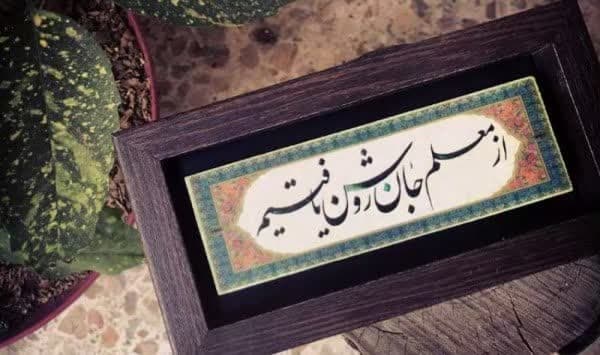 از معلم جان روشن یافتیم